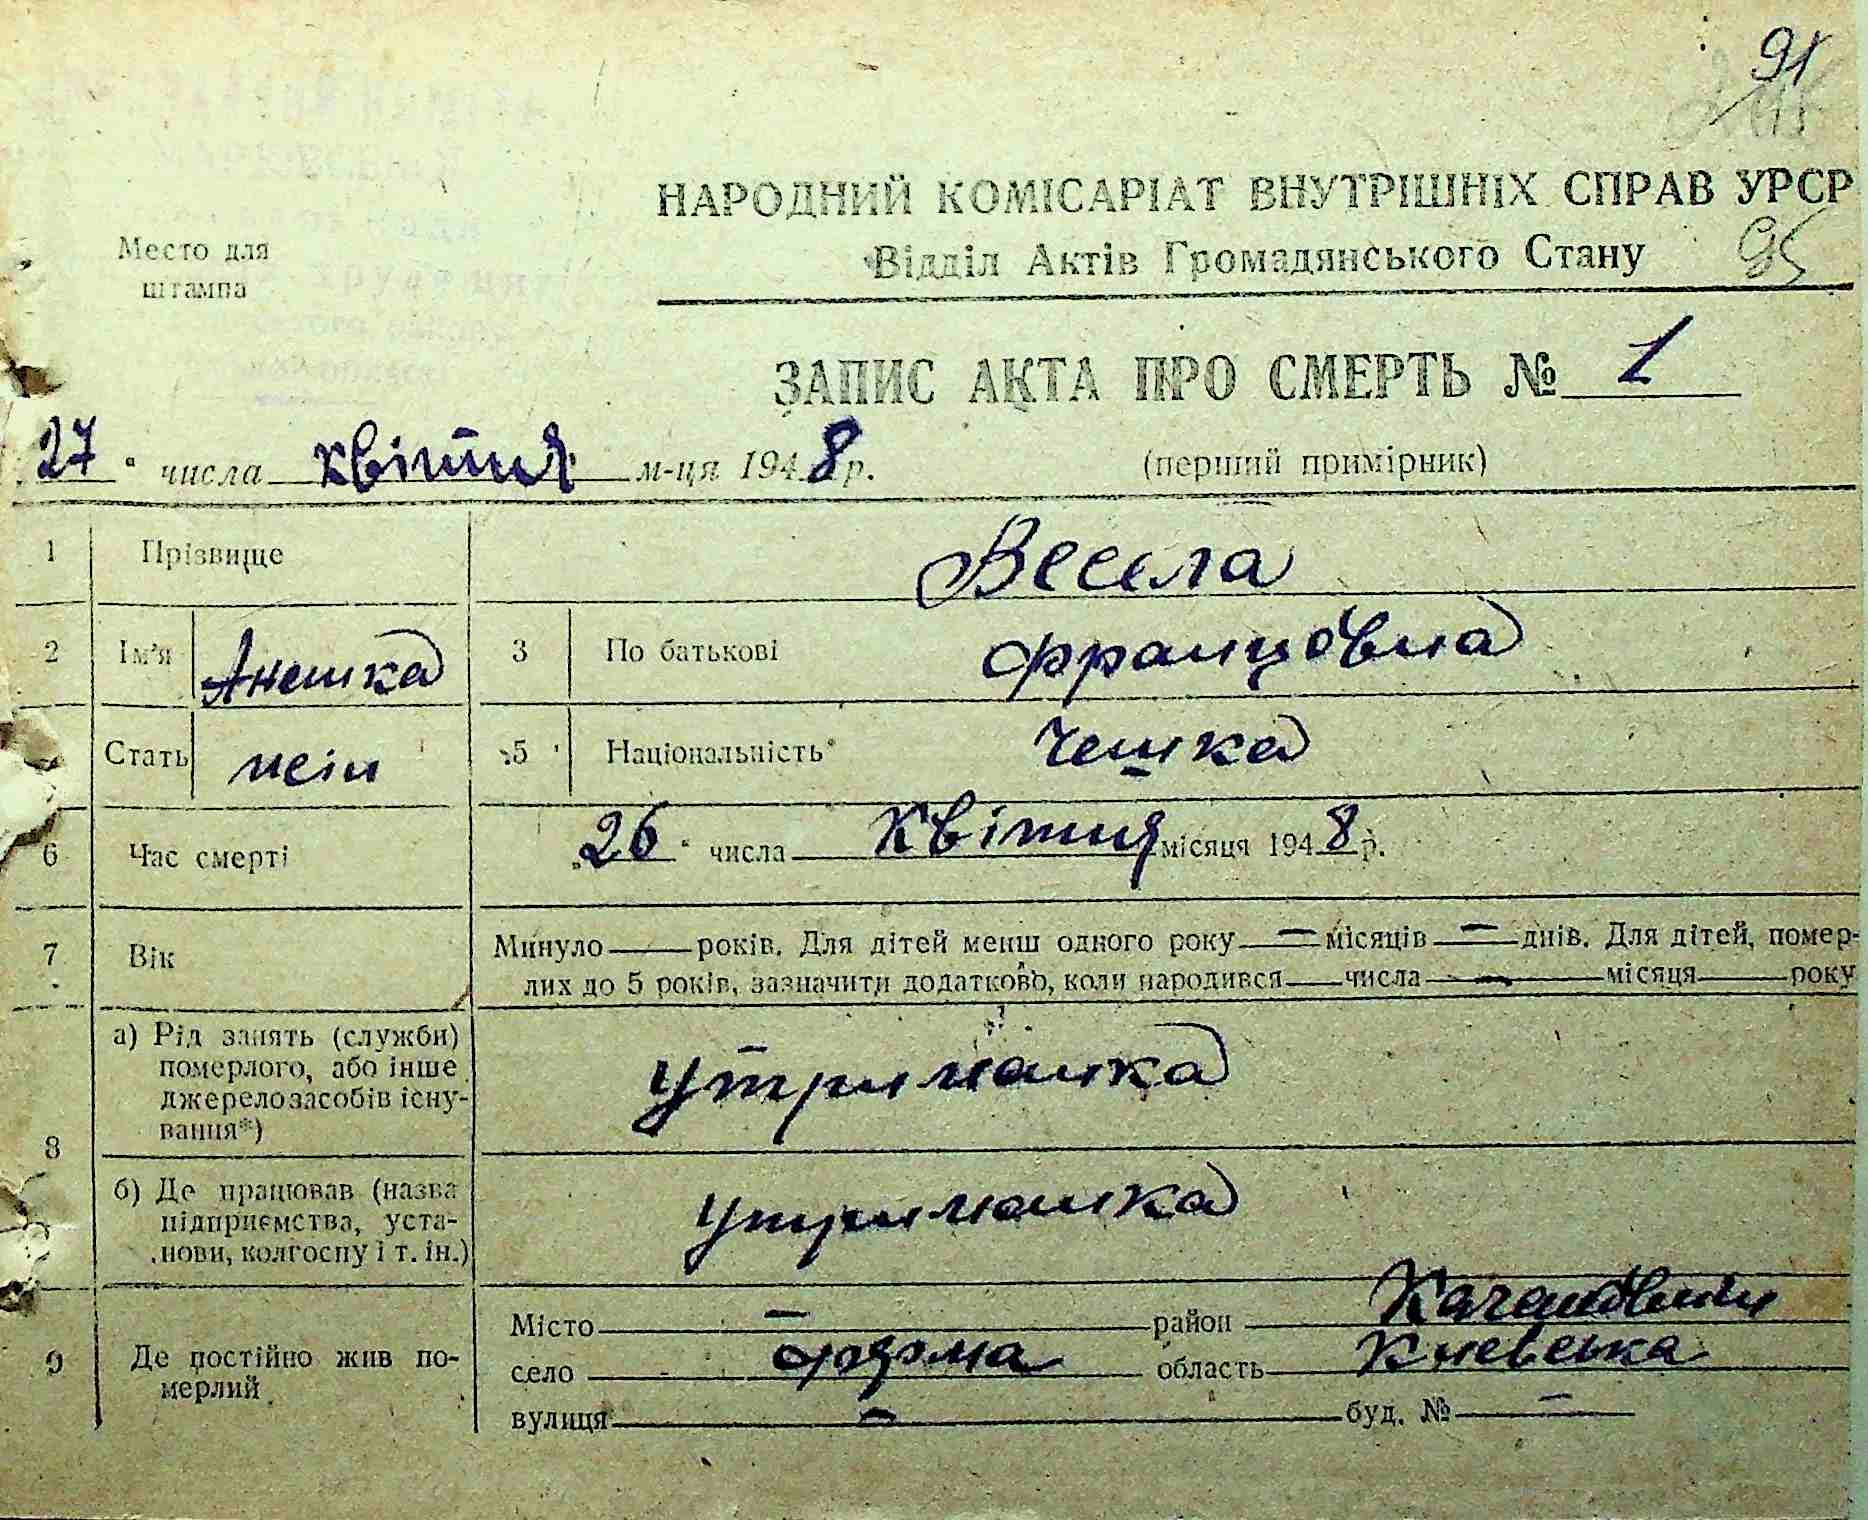 91
95
НАРОДНИЙ КОМІСАРІАТ ВНУТРІШНІХ СПРАВ УРСР
Відділ Актів Громадянського Стану
Место для
штампа
ЗАПИС АКТА ПРО СМЕРТЬ № 1
27 " числа квітня м-ця 1948 р.
(перший примірник)
1 Прізвище Весела
2 Ім'я Анешка 3 По батькові Францовна
Стать жін 5 Національність Чешка
6 Час смерті „26" числа квітня місяця 1948 р.
7 Вік Минуло — років. Для дітей менш одного року — місяців — днів. Для дітей, помер-
лих до 5 років, зазначити додатково, коли народився — числа — місяця — року
8 а) Рід занять (служби)
померлого, або інше
джерело засобів існу-
вання*)
утриманка
б) Де працював (назва
підприємства, уста-
нови, колгоспу і т. ін.)
утриманка
9 Де постійно жив по-
мерлий
Місто — район
село область Киевська
вулиця — буд. № —